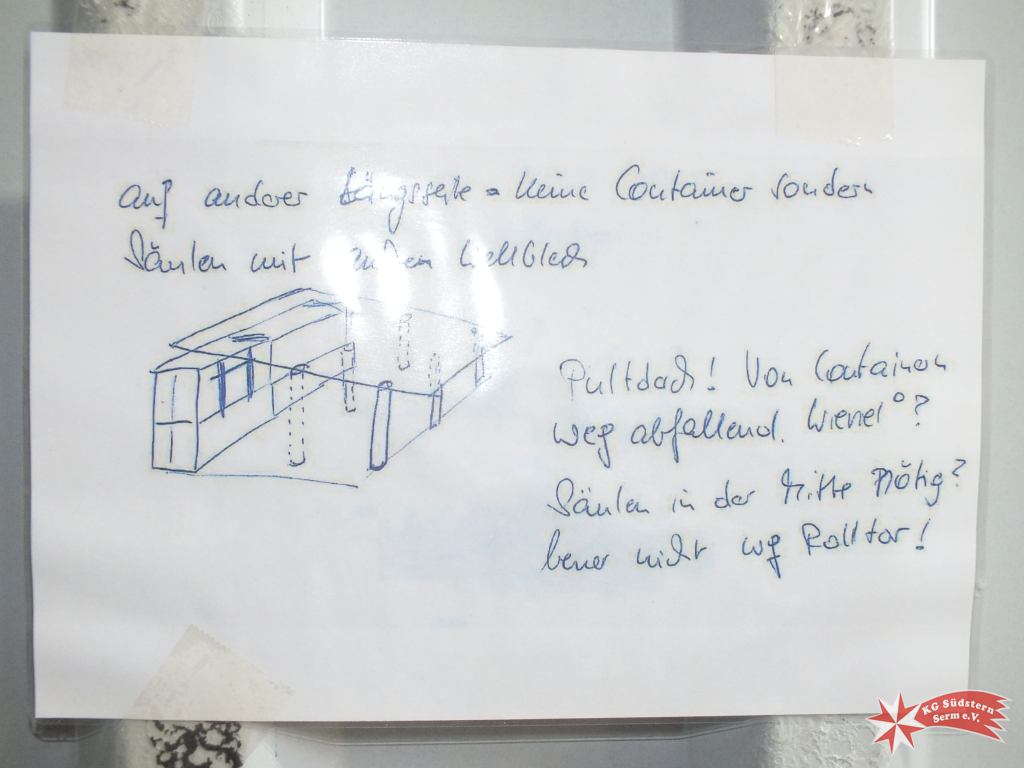 auf anderer Längsseite = keine Container sondern
Säulen mit außen Wellblech
Pultdach! Von Containern
weg abfallend. Wieviel °?
Säulen in der Mitte nötig?
besser nicht wg Rolltor!
KG Südstern
Serm e.V.